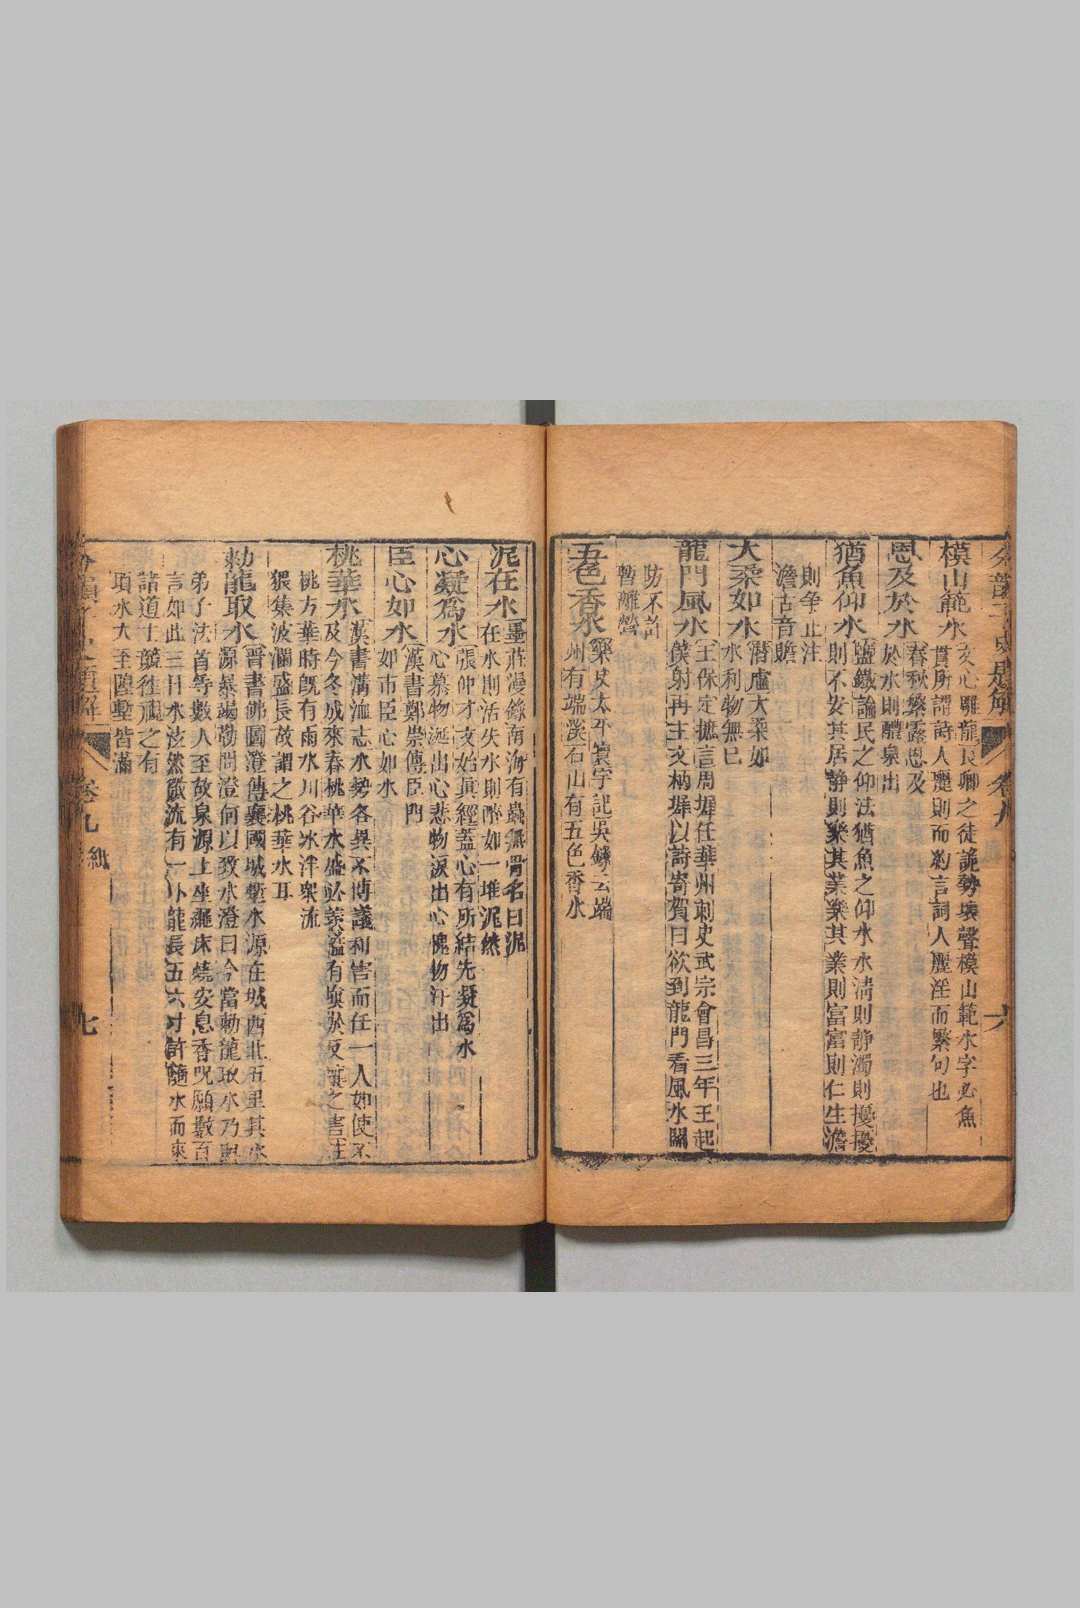 模山範水
文心雕龍長卿之徒詭勢壞聲模山範水字必魚
貫所謂詩人麗則而約言詞人麗淫而繁句也
恩及於水
春秋繁露恩及
於水則醴泉出
猶魚仰水
鹽鐵論民之仰法猶魚之仰水水清則靜濁則擾擾
則不安其居靜則樂其業樂其業則富富則仁生澹
則争止注
澹古音贍
大柔如水
潛虛大柔如
水利物無巳
龍門風水
王保定摭言周墀任華州刺史武宗會昌三年王起
僕射再主文柄墀以詩寄賀曰欲到龍門看風水關
防不許
暫離營
五色香水
樂史太平寰宇記吳錄云端
州有端溪石山有五色香水
卷九
六
泥在水
墨莊漫錄南海有蟲無骨名曰泥
在水則活失水則醉如一堆泥然
心凝爲水
張仲才文始眞經蓋心有所結先凝爲水
心慕物涎出心悲物淚出心愧物汗出
臣心如水
漢書鄭崇傳臣門
如市臣心如水
桃華水
漢書溝洫志水勢各異不博議利害而任一人如使不
及今冬成來春桃華水盛必羨溢有塡淤反壤之害注
桃方華時旣有雨水川谷冰泮衆流
猥集波瀾盛長故謂之桃華水耳
勑龍取水
晋書佛圖澄傳襄國城塹水源在城西北五里其水
源暴竭勒問澄何以致水澄曰今當勅龍取水乃與
弟子法首等數人至故泉源上坐繩床燒安息香呪願數百
言如此三日水泫然微流有一小龍長五六寸許隨水而來
諸道士競往觀之有
頃水大至隍塹皆滿
卷九 紙
七